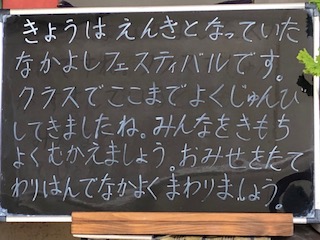 きょうはえんきとなっていた
なかよしフェスティバルです。
クラスでここまでよくじゅんび
してきましたね。みんなをきもち
よくむかえましょう。おみせをたて
わりはんでなかよくまわりましょう。